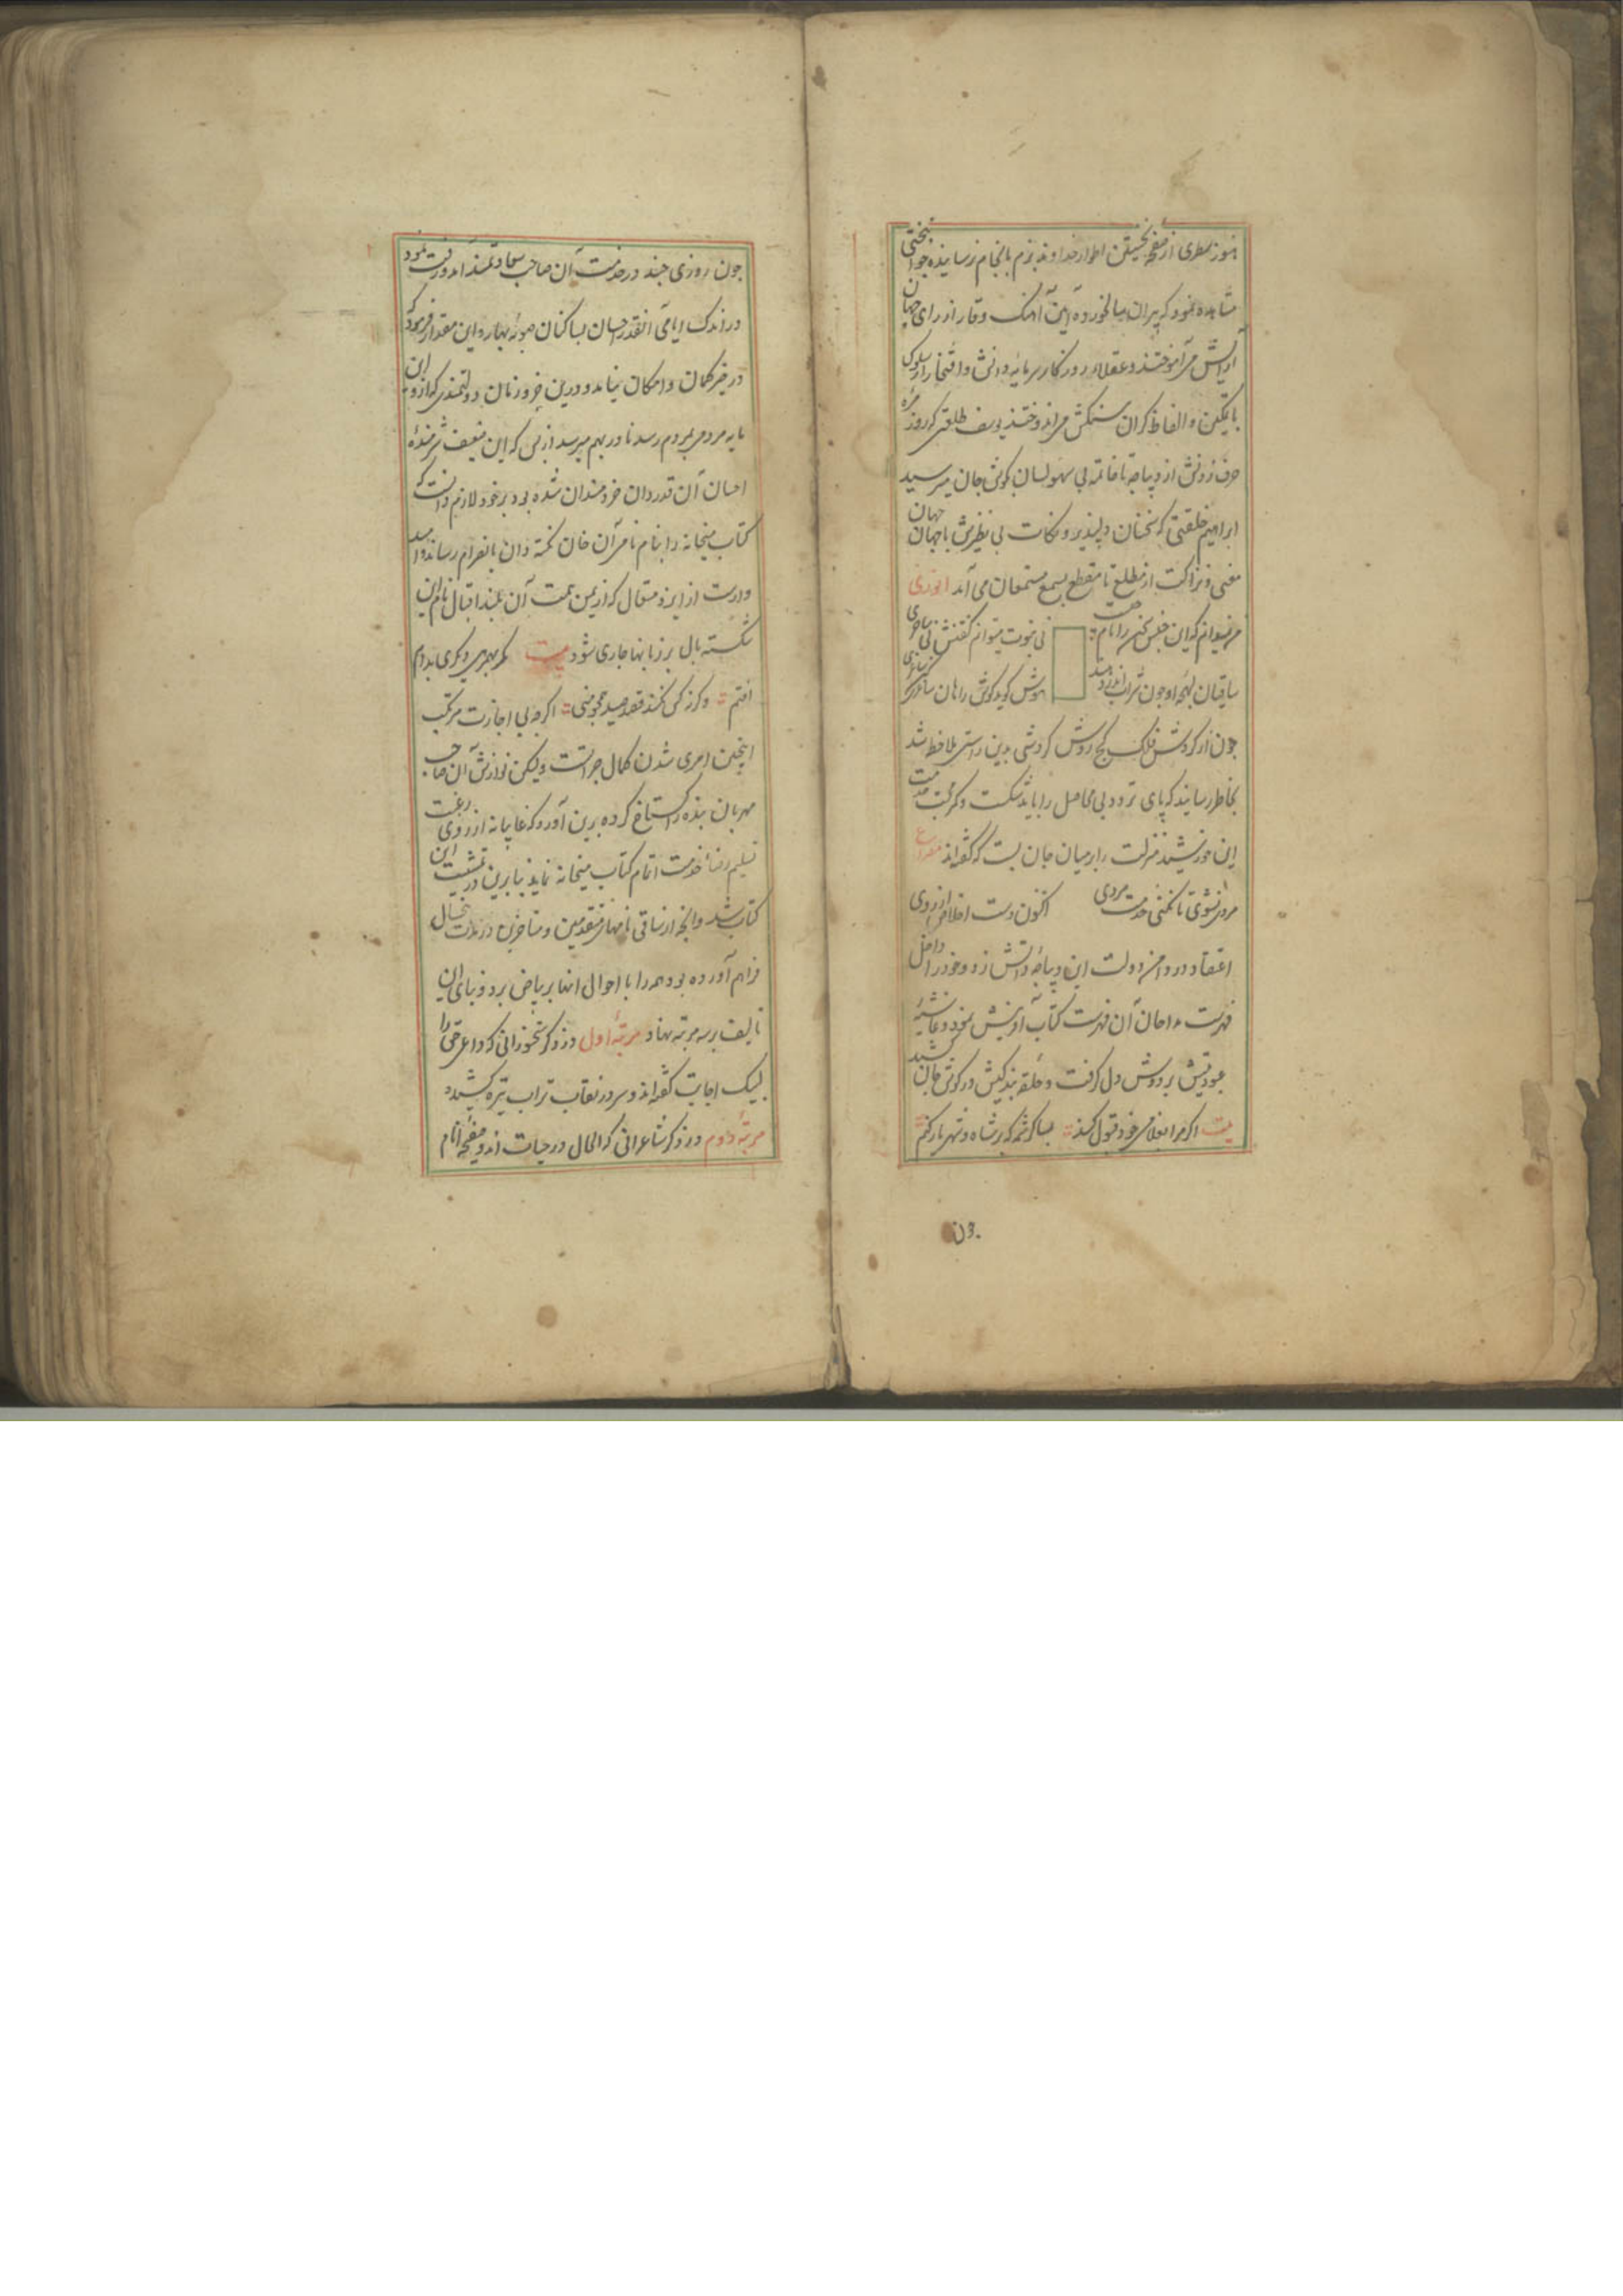 هنوز سطری از صفحهٔ نخستین اطوار خداوند بزم بانجام نرسانیده جوانبختی
مشاهده نمود که پیران سالخورده آیین آهنک وقار از رای جهان
آرایش می آموختند و عقلاء روزکار سرمایهٔ دانش و افتخار از سلوک
با تمکین و الفاظ کران سنکش می اندوختند یوسف طلعتی که روزمره
حرف زدنش از دیباچه تا خاتمه بی سهو لسان بکوش جان میرسید
ابراهیم خلقتی که سخنان دلپذیر و نکات بی نظیرش با جهان جهان
معنی و نزاکت از مطلع تا مقطع بسمع مستمعان می آید انوری
من نمیدانم که این جنس سخن را نام چیست
نی نبوت میتوانم کفتنش نی ساحری
ساقیان لهجهٔ او چون شراب اندر دهند
هوش کوید کوش را هان ساغری کن ساغری
چون از کردش فلک کج روش کردشی بدین راستی ملاحظه شد
بخاطر رسانید که پای تردد بی محاصل را باید شکست و کمر خدمت
این خورشید منزلت را بر میان جان بست که کفته اند مصراع
مرد نشوی تا نکنی خدمت مردی اکنون دست اخلاص از روی
اعتقاد در دامن دولت این دیباچهٔ دانش زد و خود را داخل
فهرست مداحان آن فهرست کتاب آفرینش نمود و غاشیهٔ
عبودیتش بر دوش دل کرفت و حلقهٔ بندکیش در کوش جان کشید
بیت اکر مرا بغلامی خود قبول کند بسا کرشمه که بر شاه و شهریار کنم
چون روزی چند در خدمت آن صاحب سعادتمند آمد و رفت نمود
در اندک ایامی آنقدر احسان بساکنان صوبهٔ بهار و این مقدار فرمود که
در حیز کمان و امکان نیاید و درین جزو زمان دولتمندی که ازو این
مایه مردمی بمردم رسد نادر بهم میرسد از بس که این ضعیف شرمندهٔ
احسان آن قدردان خردمندان شده بود بر خود لازم دانست که
کتاب میخانه را بنام نامی آن خان نکته دان بانصرام رساند و امید
وارست از ایزد متعال که از یمن همت آن بلند اقبال نام این
شکسته بال بر زبانها جاری شود بیت
افتم و کرنه کس نکند قصد صید همچو منی اکرچه بی اجازت مرتکب
اینچنین امری شدن کمال جراتست ولیکن نوازش آن صاحب
مهربان بنده را کستاخ کرده برین آورد که غایبانه از روی رغبت
تسلیم رضا خدمت اتمام کتاب میخانه نماید بنابرین در تمشیت این
کتاب شد و آنچه از ساقی نامهای متقدمین و متاخرین در مدت
فراهم آورده بود همه را با احوال آنها بر بیاض برد و بنای این
تالیف بر سه مرتبه نهاد مرتبهٔ اول در ذکر سخنورانی که داعی حق را
لبیک اجابت کفته اند و سر در نقاب تراب تیره کشیده
مرتبهٔ دوم در ذکر شاعرانی که الحال در حیات اند و صفحهٔ ایام